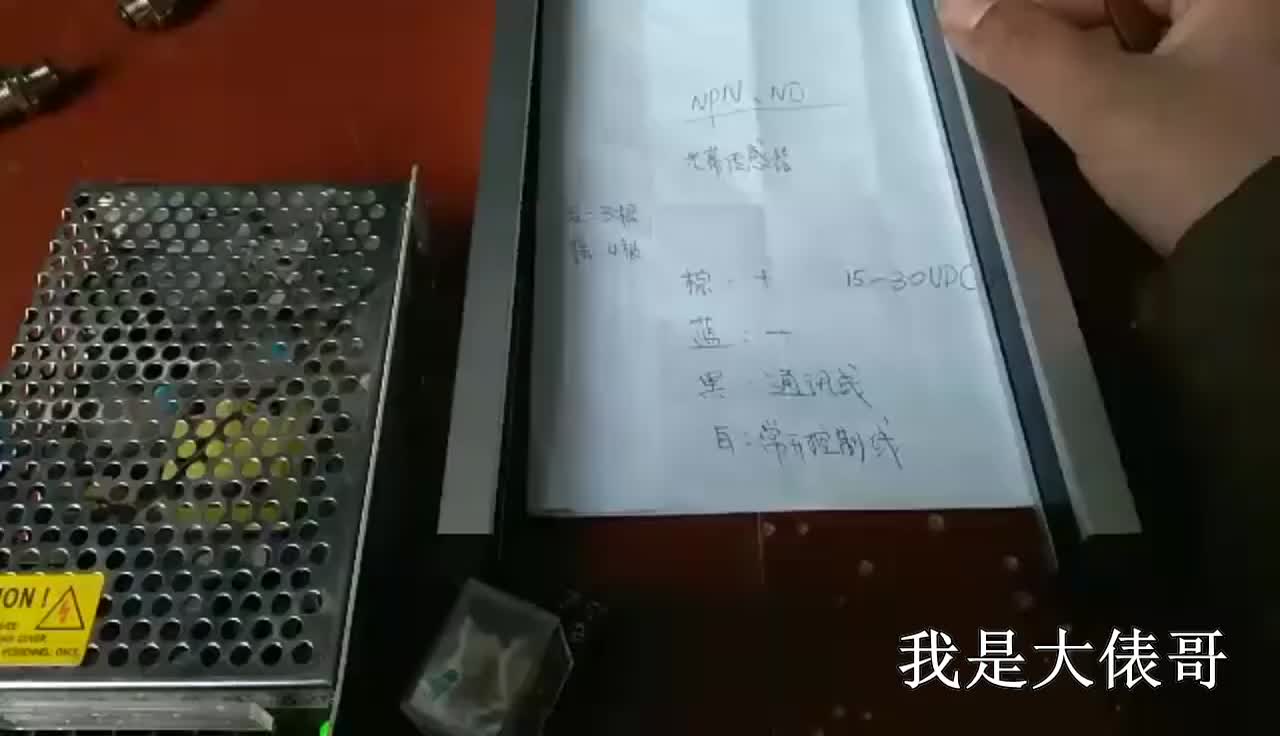 NPN、NO
光幕传感器
发-3根
棕：+ 15-30VDC
蓝：一
黑：通讯线
白：常开控制线
ION!
COVER
PERSONNEL ONLY.
我是大俵哥